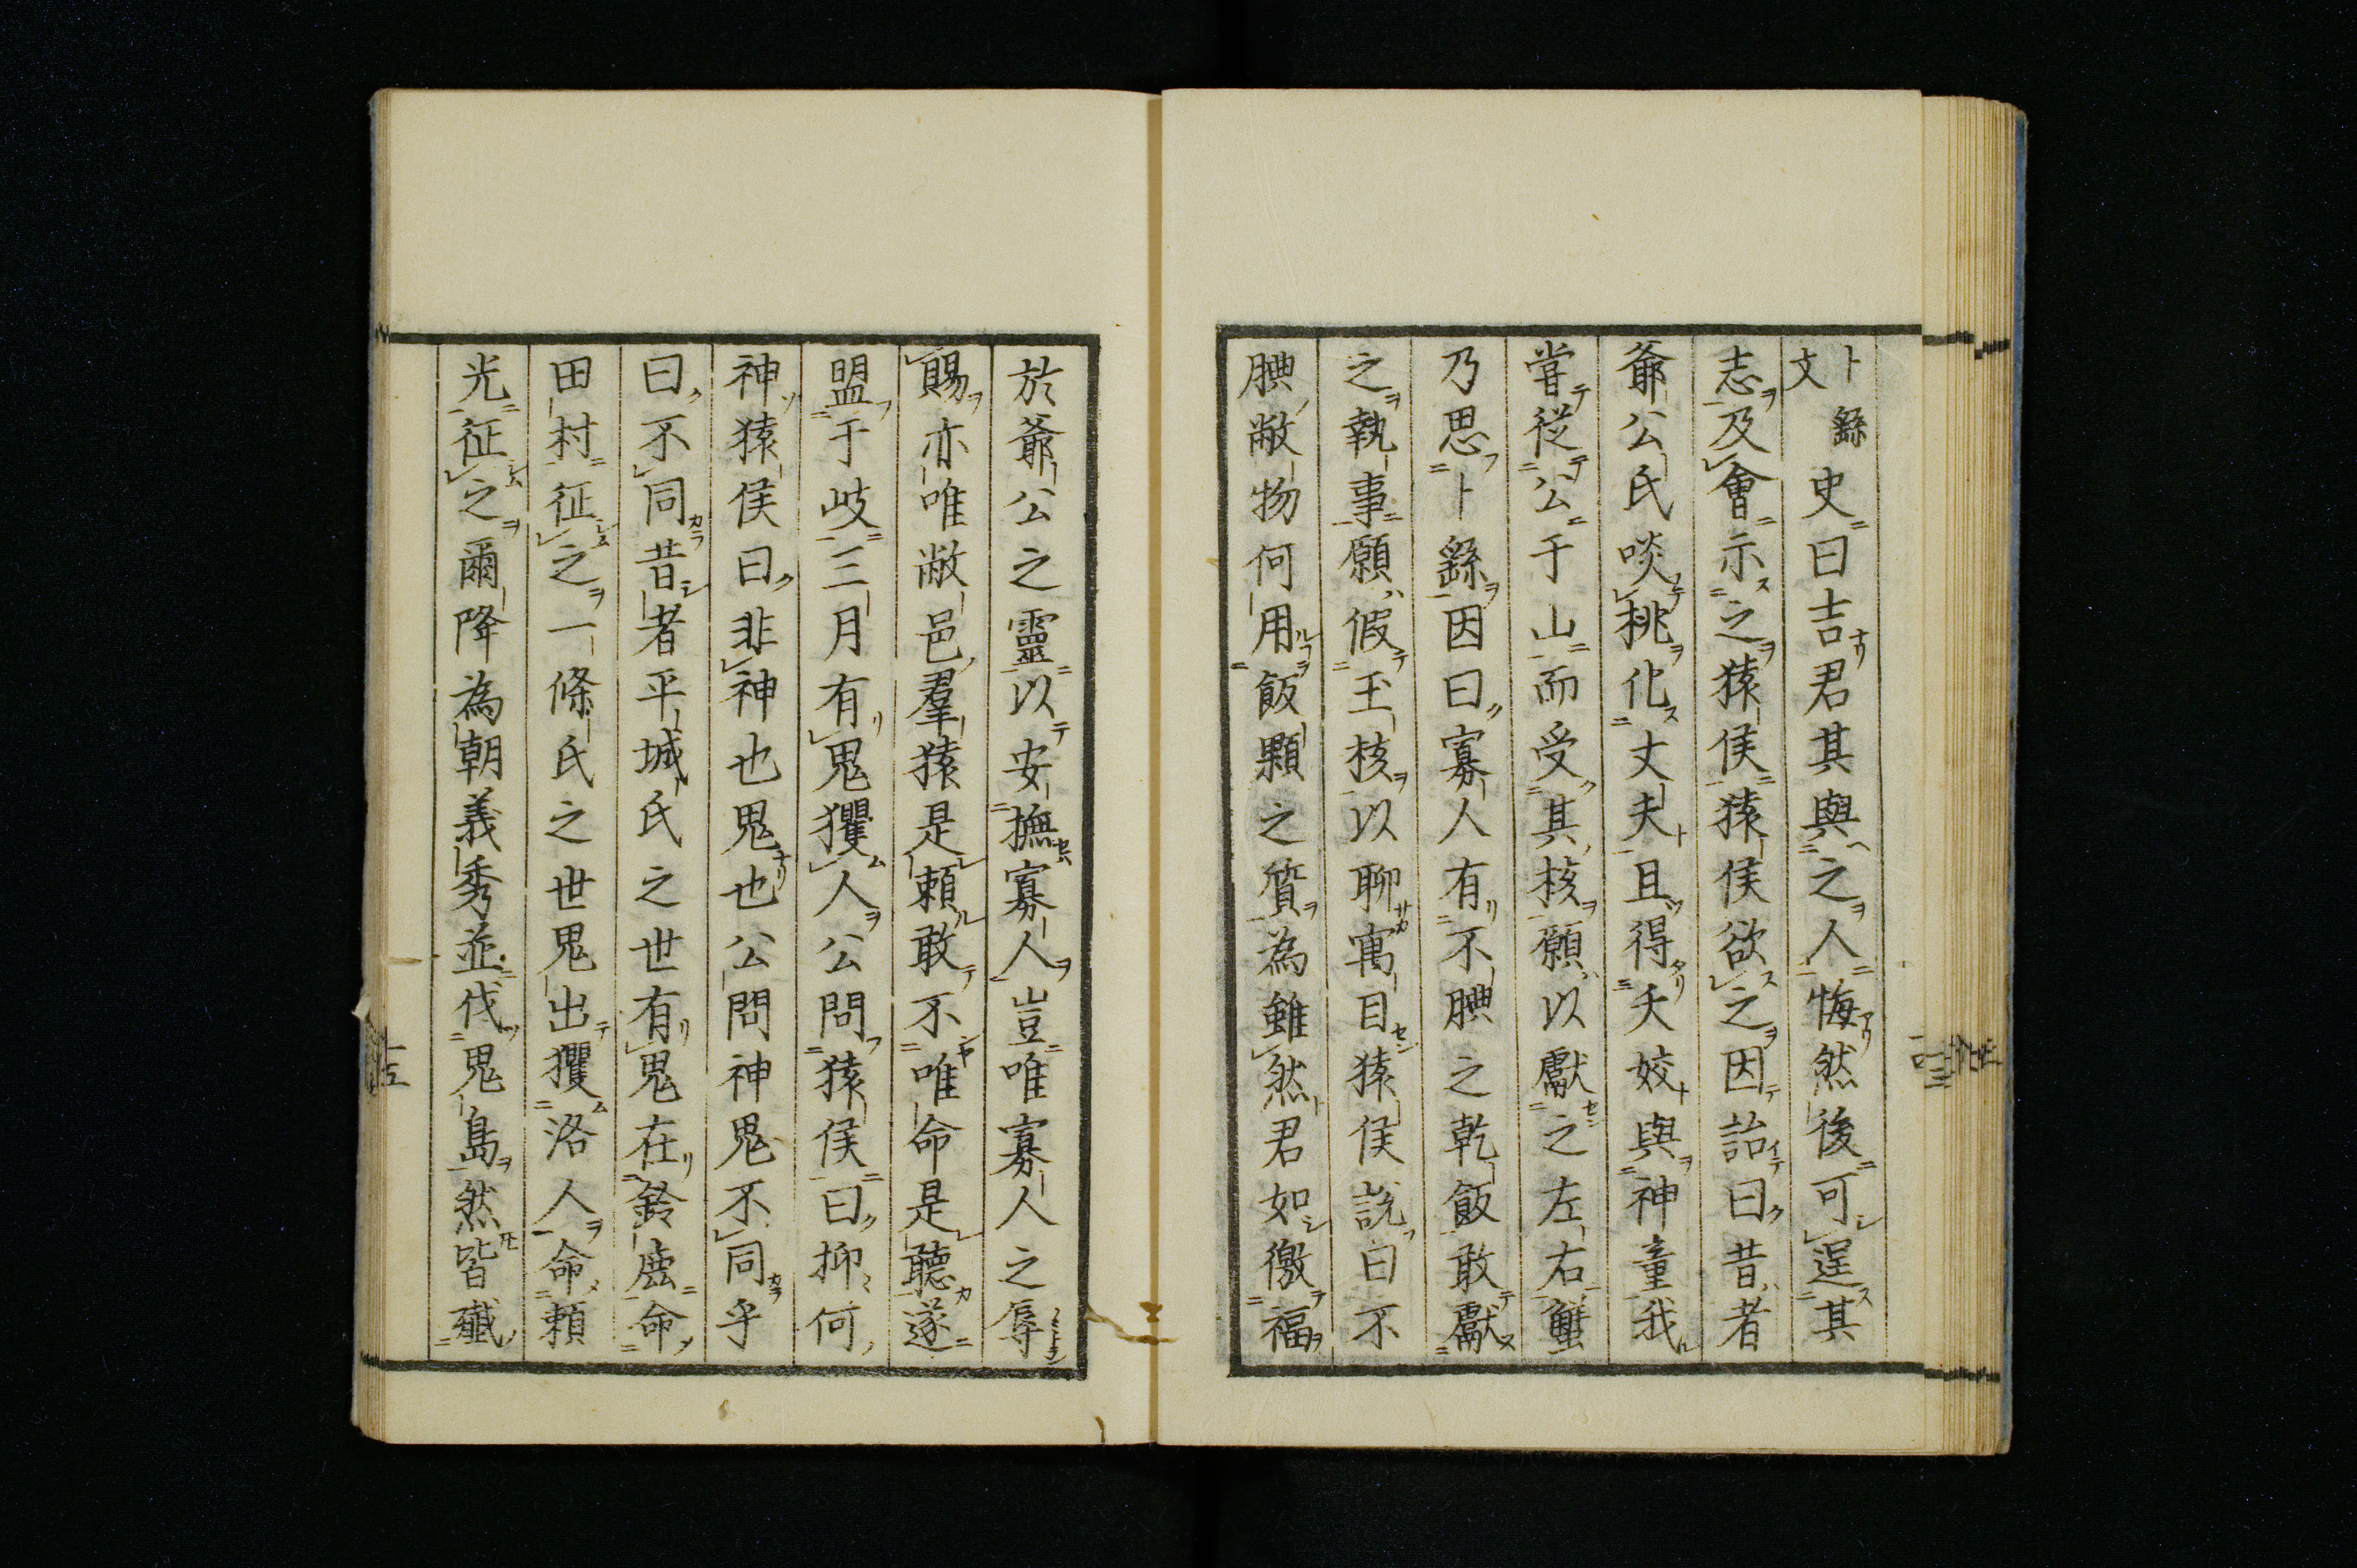 卜繇文史曰吉君其與之人悔然後可逞其
志及會示之猿侯猿侯欲之因詒曰昔者
爺公氏啖桃化丈夫且得夭姣與神童我
嘗從公于山而受其核願以獻之左右蟹
乃思卜繇因曰寡人有不腆之乾飯敢獻
之執事願假玉核以聊寓目猿侯説曰不
腆敝物何用飯顆之質為雖然君如徼福
於爺公之靈以安撫寡人豈唯寡人之辱
賜亦唯敝邑羣猿是賴敢不唯命是聽遂
盟于歧三月有鬼玃人公問猿侯曰抑何
神猿侯曰非神也鬼也公問神鬼不同乎
曰不同昔者平城氏之世有鬼在鈴鹿命
田村征之一條氏之世鬼出玃洛人命頼
光征之爾降為朝義秀並伐鬼島然皆殱